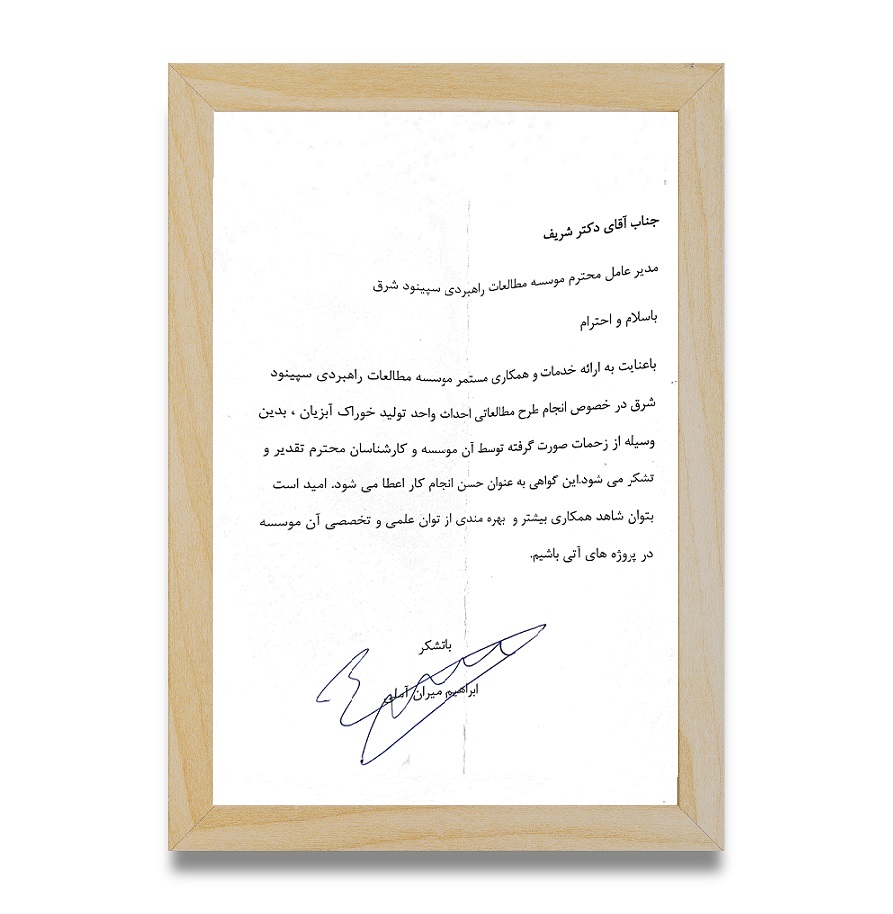 جناب آقای دکتر شریف
مدیر عامل محترم موسسه مطالعات راهبردی سپینود شرق
باسلام و احترام
باعنایت به ارائه خدمات و همکاری مستمر موسسه مطالعات راهبردی سپینود
شرق در خصوص انجام طرح مطالعاتی احداث واحد تولید خوراک آبزیان ، بدین
وسیله از زحمات صورت گرفته توسط آن موسسه و کارشناسان محترم تقدیر و
تشکر می شود.این گواهی به عنوان حسن انجام کار اعطا می شود. امید است
بتوان شاهد همکاری بیشتر و بهره مندی از توان علمی و تخصصی آن موسسه
در پروژه های آتی باشیم.
باتشکر
ابراهیم میران